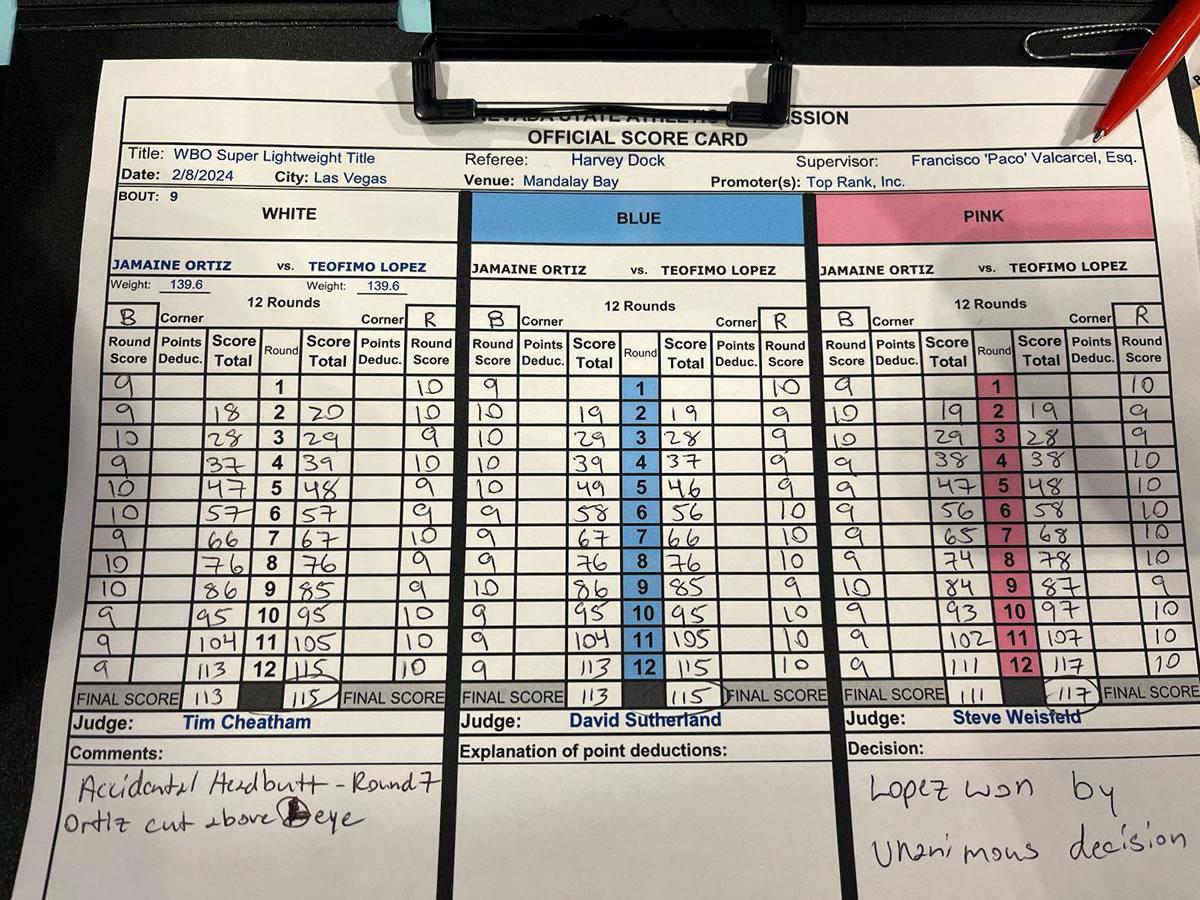 NEVADA STATE ATHLETIC COMMISSION
OFFICIAL SCORE CARD
Title: WBO Super Lightweight Title Referee: Harvey Dock Supervisor: Francisco 'Paco' Valcarcel, Esq.
Date: 2/8/2024 City: Las Vegas Venue: Mandalay Bay Promoter(s): Top Rank, Inc.
BOUT: 9
WHITE BLUE PINK
JAMAINE ORTIZ vs. TEOFIMO LOPEZ JAMAINE ORTIZ vs. TEOFIMO LOPEZ JAMAINE ORTIZ vs. TEOFIMO LOPEZ
Weight: 139.6 Weight: 139.6
12 Rounds 12 Rounds 12 Rounds
B Corner Corner R B Corner Corner R B Corner Corner R
Round Points Score Round Score Points Round Round Points Score Round Score Points Round Round Points Score Round Score Points Round
Score Deduc. Total Total Deduc. Score Score Deduc. Total Total Deduc. Score Score Deduc. Total Total Deduc. Score
9 1 10 9 1 10 9 1 10
9 18 2 20 10 10 19 2 19 9 10 19 2 19 9
10 28 3 29 9 10 29 3 28 9 10 29 3 28 9
9 37 4 39 10 10 39 4 37 9 9 38 4 38 10
10 47 5 48 9 10 49 5 46 9 9 47 5 48 10
10 57 6 57 9 9 58 6 56 10 9 56 6 58 10
9 66 7 67 10 9 67 7 66 10 9 65 7 68 10
10 76 8 76 9 9 76 8 76 10 9 74 8 78 10
10 86 9 85 9 10 86 9 85 9 10 84 9 87 9
9 95 10 95 10 9 95 10 95 10 9 93 10 97 10
9 104 11 105 10 9 104 11 105 10 9 102 11 107 10
9 113 12 115 10 9 113 12 115 10 9 111 12 117 10
FINAL SCORE 113 115 FINAL SCORE FINAL SCORE 113 115 FINAL SCORE FINAL SCORE 111 117 FINAL SCORE
Judge: Tim Cheatham Judge: David Sutherland Judge: Steve Weisfeld
Comments: Explanation of point deductions: Decision:
Accidental Headbutt - Round 7
Ortiz cut above eye
Lopez won by
Unanimous decision